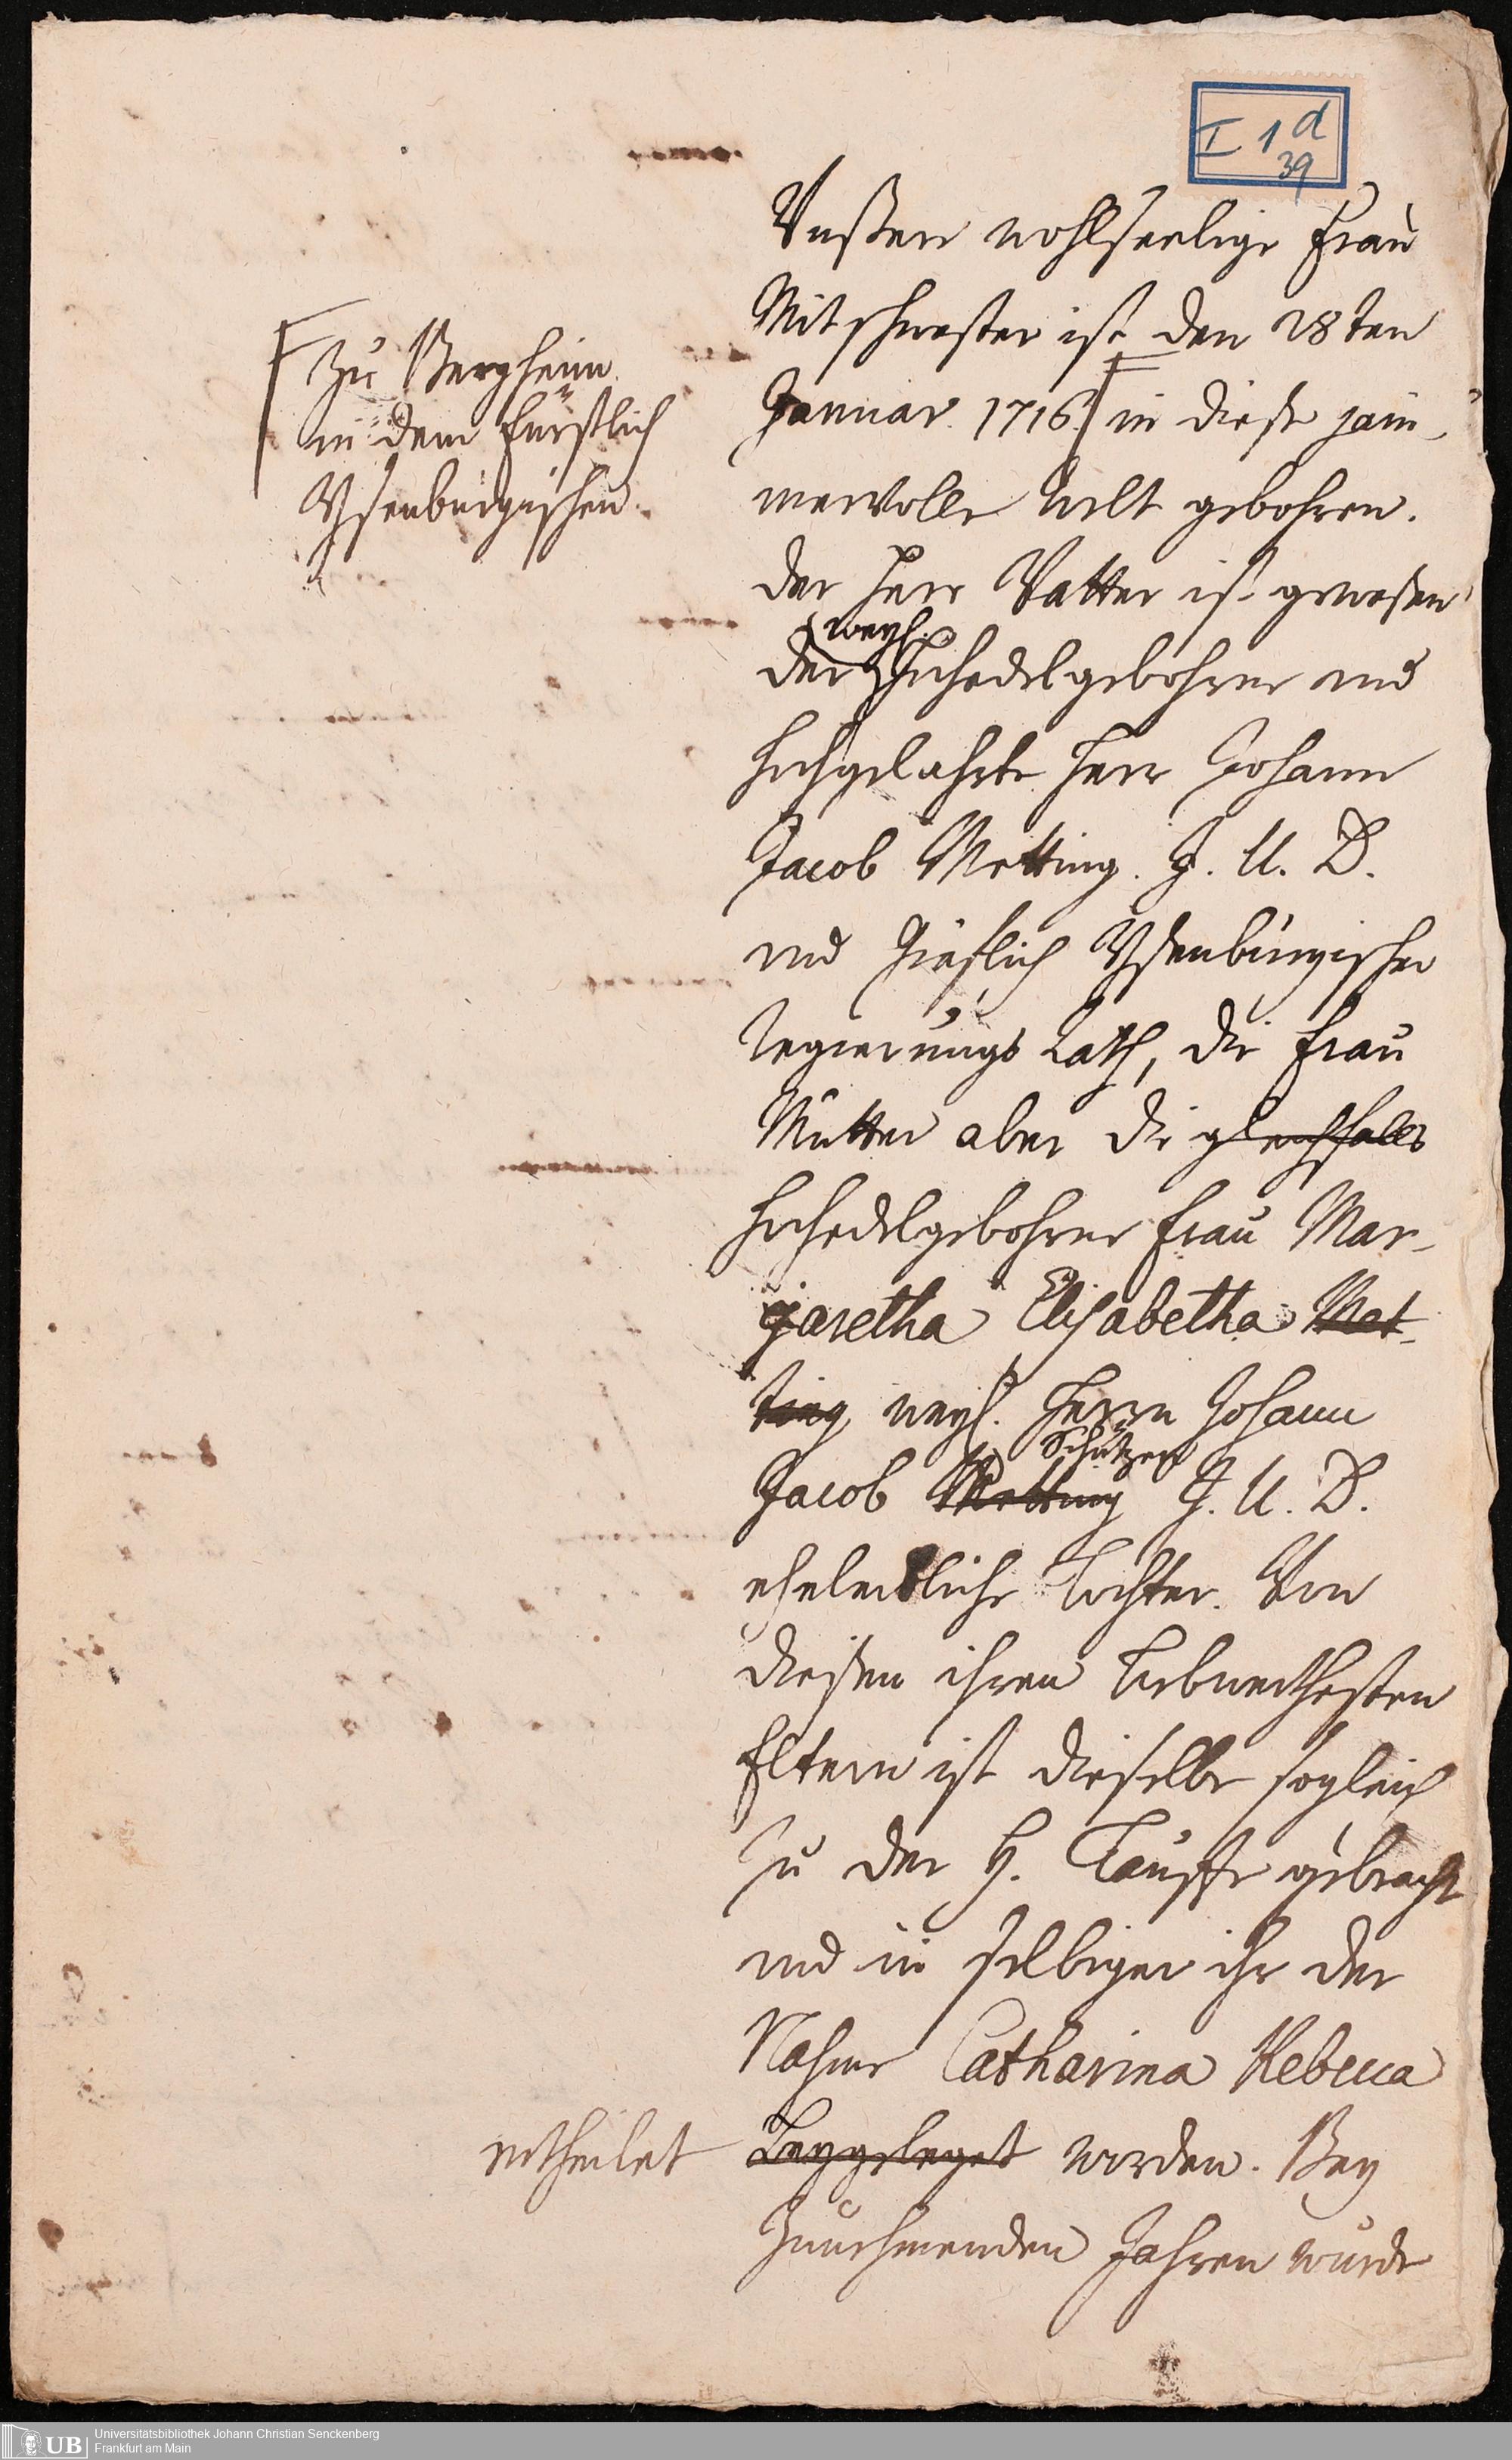 I 1 d
39
Unßere wohlseelige Frau
Mitschwester ist den 28ten
Januar. 1716. in diese jam-
mervolle Welt gebohren.
Zu Bergheim
in dem Fürstlich
Ysenburgischen
Der Herr Vatter ist gewesen
weyl.
der Hochedelgebohrne und
Hochgelahrte Herr Johann
Jacob Metting. J. U. D.
und Fürstlich Ysenburgischer
Regierungs Rath, die Frau
Mutter aber die gleichfalls
Hochedelgebohrne Frau Mar-
garetha Elisabetha Met-
ting weyl. Herrn Johann
Schützen
Jacob Metting J. U. D.
eheleibliche Tochter. Von
diesen ihren Liebwerthesten
Eltern ist dieselbe sogleich
zu der H. Tauffe gebracht
und in selbiger ihr der
Nahme Catharina Rebecca
ertheilet
beygeleget worden. Bey
Zunehmenden Jahren wurde
UB
Universitätsbibliothek Johann Christian Senckenberg
Frankfurt am Main